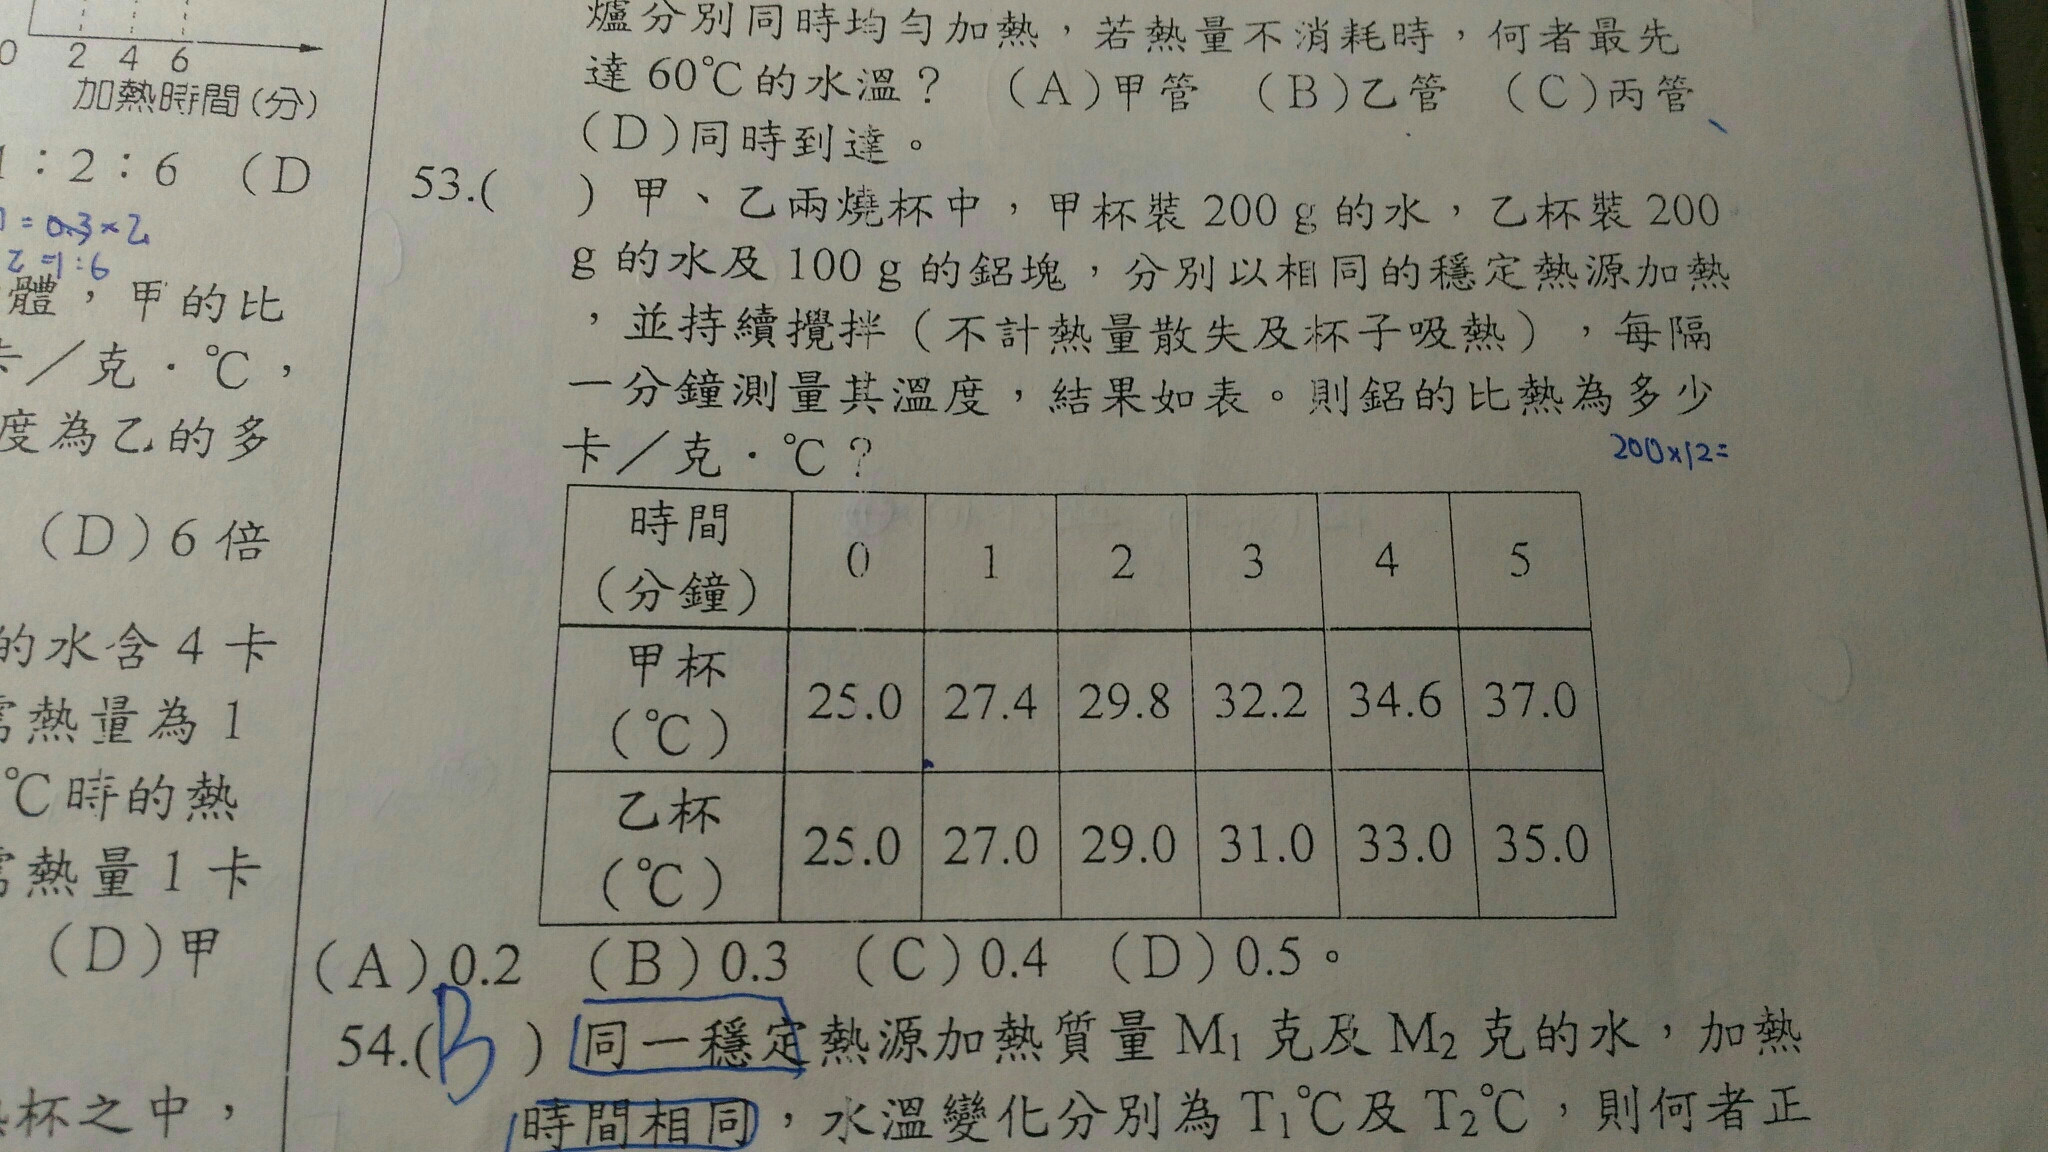 0 2 4 6
加熱時間(分)
1：2：6 (D
= 0.3×2
2 = 1:6
體，甲的比
卡／克．℃，
度為乙的多
(D)6倍
的水含4卡
需熱量為1
℃時的熱
需熱量1卡
(D)甲
杯之中，
爐分別同時均勻加熱，若熱量不消耗時，何者最先
達60℃的水溫？ (A)甲管 (B)乙管 (C)丙管
(D)同時到達。
53.( ) 甲、乙兩燒杯中，甲杯裝200 g的水，乙杯裝200
g的水及100 g的鋁塊，分別以相同的穩定熱源加熱
，並持續攪拌（不計熱量散失及杯子吸熱），每隔
一分鐘測量其溫度，結果如表。則鋁的比熱為多少
卡／克．℃？
200×12=
時間
(分鐘) 0 1 2 3 4 5
甲杯
(℃) 25.0 27.4 29.8 32.2 34.6 37.0
乙杯
(℃) 25.0 27.0 29.0 31.0 33.0 35.0
(A)0.2 (B)0.3 (C)0.4 (D)0.5。
54.(B) 同一穩定熱源加熱質量M₁克及M₂克的水，加熱
時間相同，水溫變化分別為T₁℃及T₂℃，則何者正